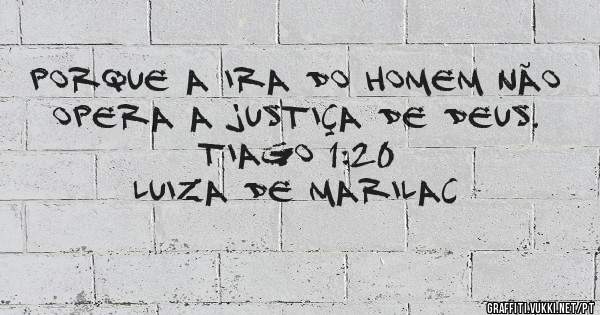 PORQUE A IRA DO HOMEM NÃO
OPERA A JUSTIÇA DE DEUS.
TIAGO 1:20
LUIZA DE MARILAC
GRAFFITI.VUKKI.NET/PT